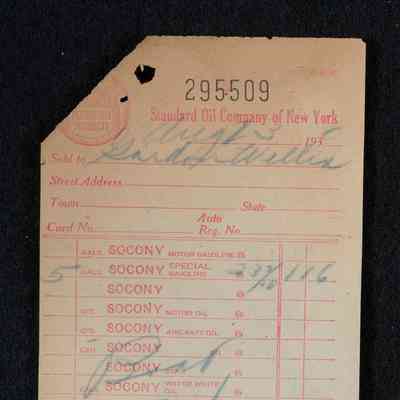 295-509
Standard Oil Company of New York
Aug 3 193
Sold to Gordon Willis
Street Address
Town State
Card No. Auto Reg. No.
GALS. SOCONY MOTOR GASOLINE @
5 GALS. SOCONY SPECIAL GASOLINE @ 1 16
SOCONY @
QTS. SOCONY MOTOR OIL @
QTS. SOCONY AIRCRAFT OIL @
SOCONY
SOCONY @
SOCONY WATER WHITE @